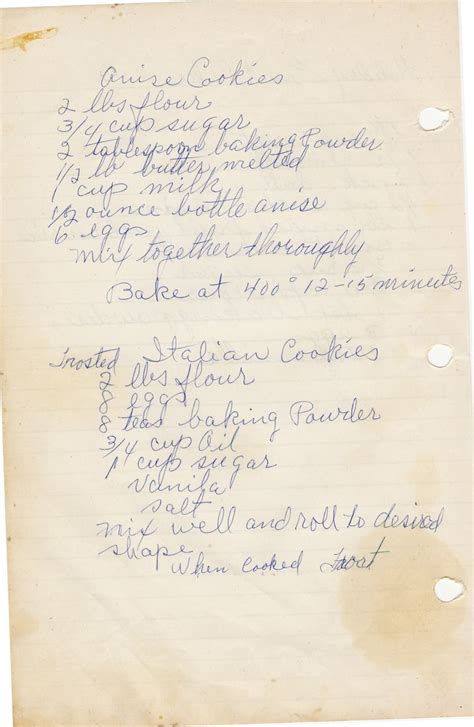 Anise Cookies
2 lbs flour
3/4 cup sugar
2 tablespoons baking Powder
1/2 lb butter melted
1 cup milk
1/2 ounce bottle anise
6 eggs
mix together thoroughly
Bake at 400° 12-15 minutes
Frosted Italian Cookies
2 lbs flour
8 eggs
8 teas baking Powder
3/4 cup Oil
1 cup sugar
Vanila
Salt
mix well and roll to desired
shape
When cooked Frost